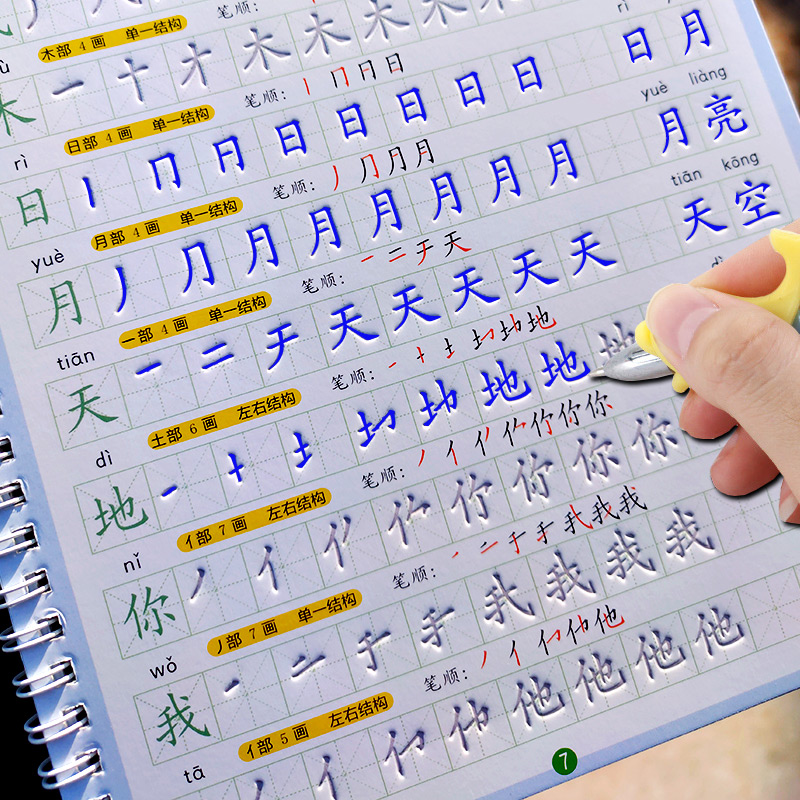 木部 4 画 单一结构 笔顺:
木 一 十 才 木 木 木 木
rì
日部 4 画 单一结构 笔顺: 丨 冂 日 日
日 月
rì
日 丨 冂 月 日 日 日 日 日
yuè liàng
月 亮
月部 4 画 单一结构 笔顺: 丿 冂 月 月
yuè
月 丿 冂 月 月 月 月 月 月
tiān kōng
天 空
一部 4 画 单一结构 笔顺: 一 二 チ 天
tiān
天 一 二 チ 天 天 天 天 天
dì
土部 6 画 左右结构 笔顺: 一 十 土 地
dì
地 一 十 土 地 地 地
亻部 7 画 左右结构 笔顺: 丿 亻 你 你
nǐ
你 丿 亻 你 你 你 你
丿部 7 画 单一结构 笔顺: 一 二 于 手 我 我 我
wǒ
我 一 二 于 手 我 我 我 我
亻部 5 画 左右结构 笔顺: 丿 亻 他 他
tā
丿 亻 他 他 他 他 他
7